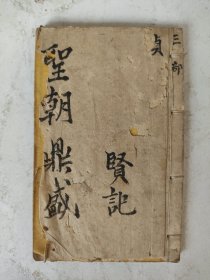 三部
貞
賢記
聖朝鼎盛